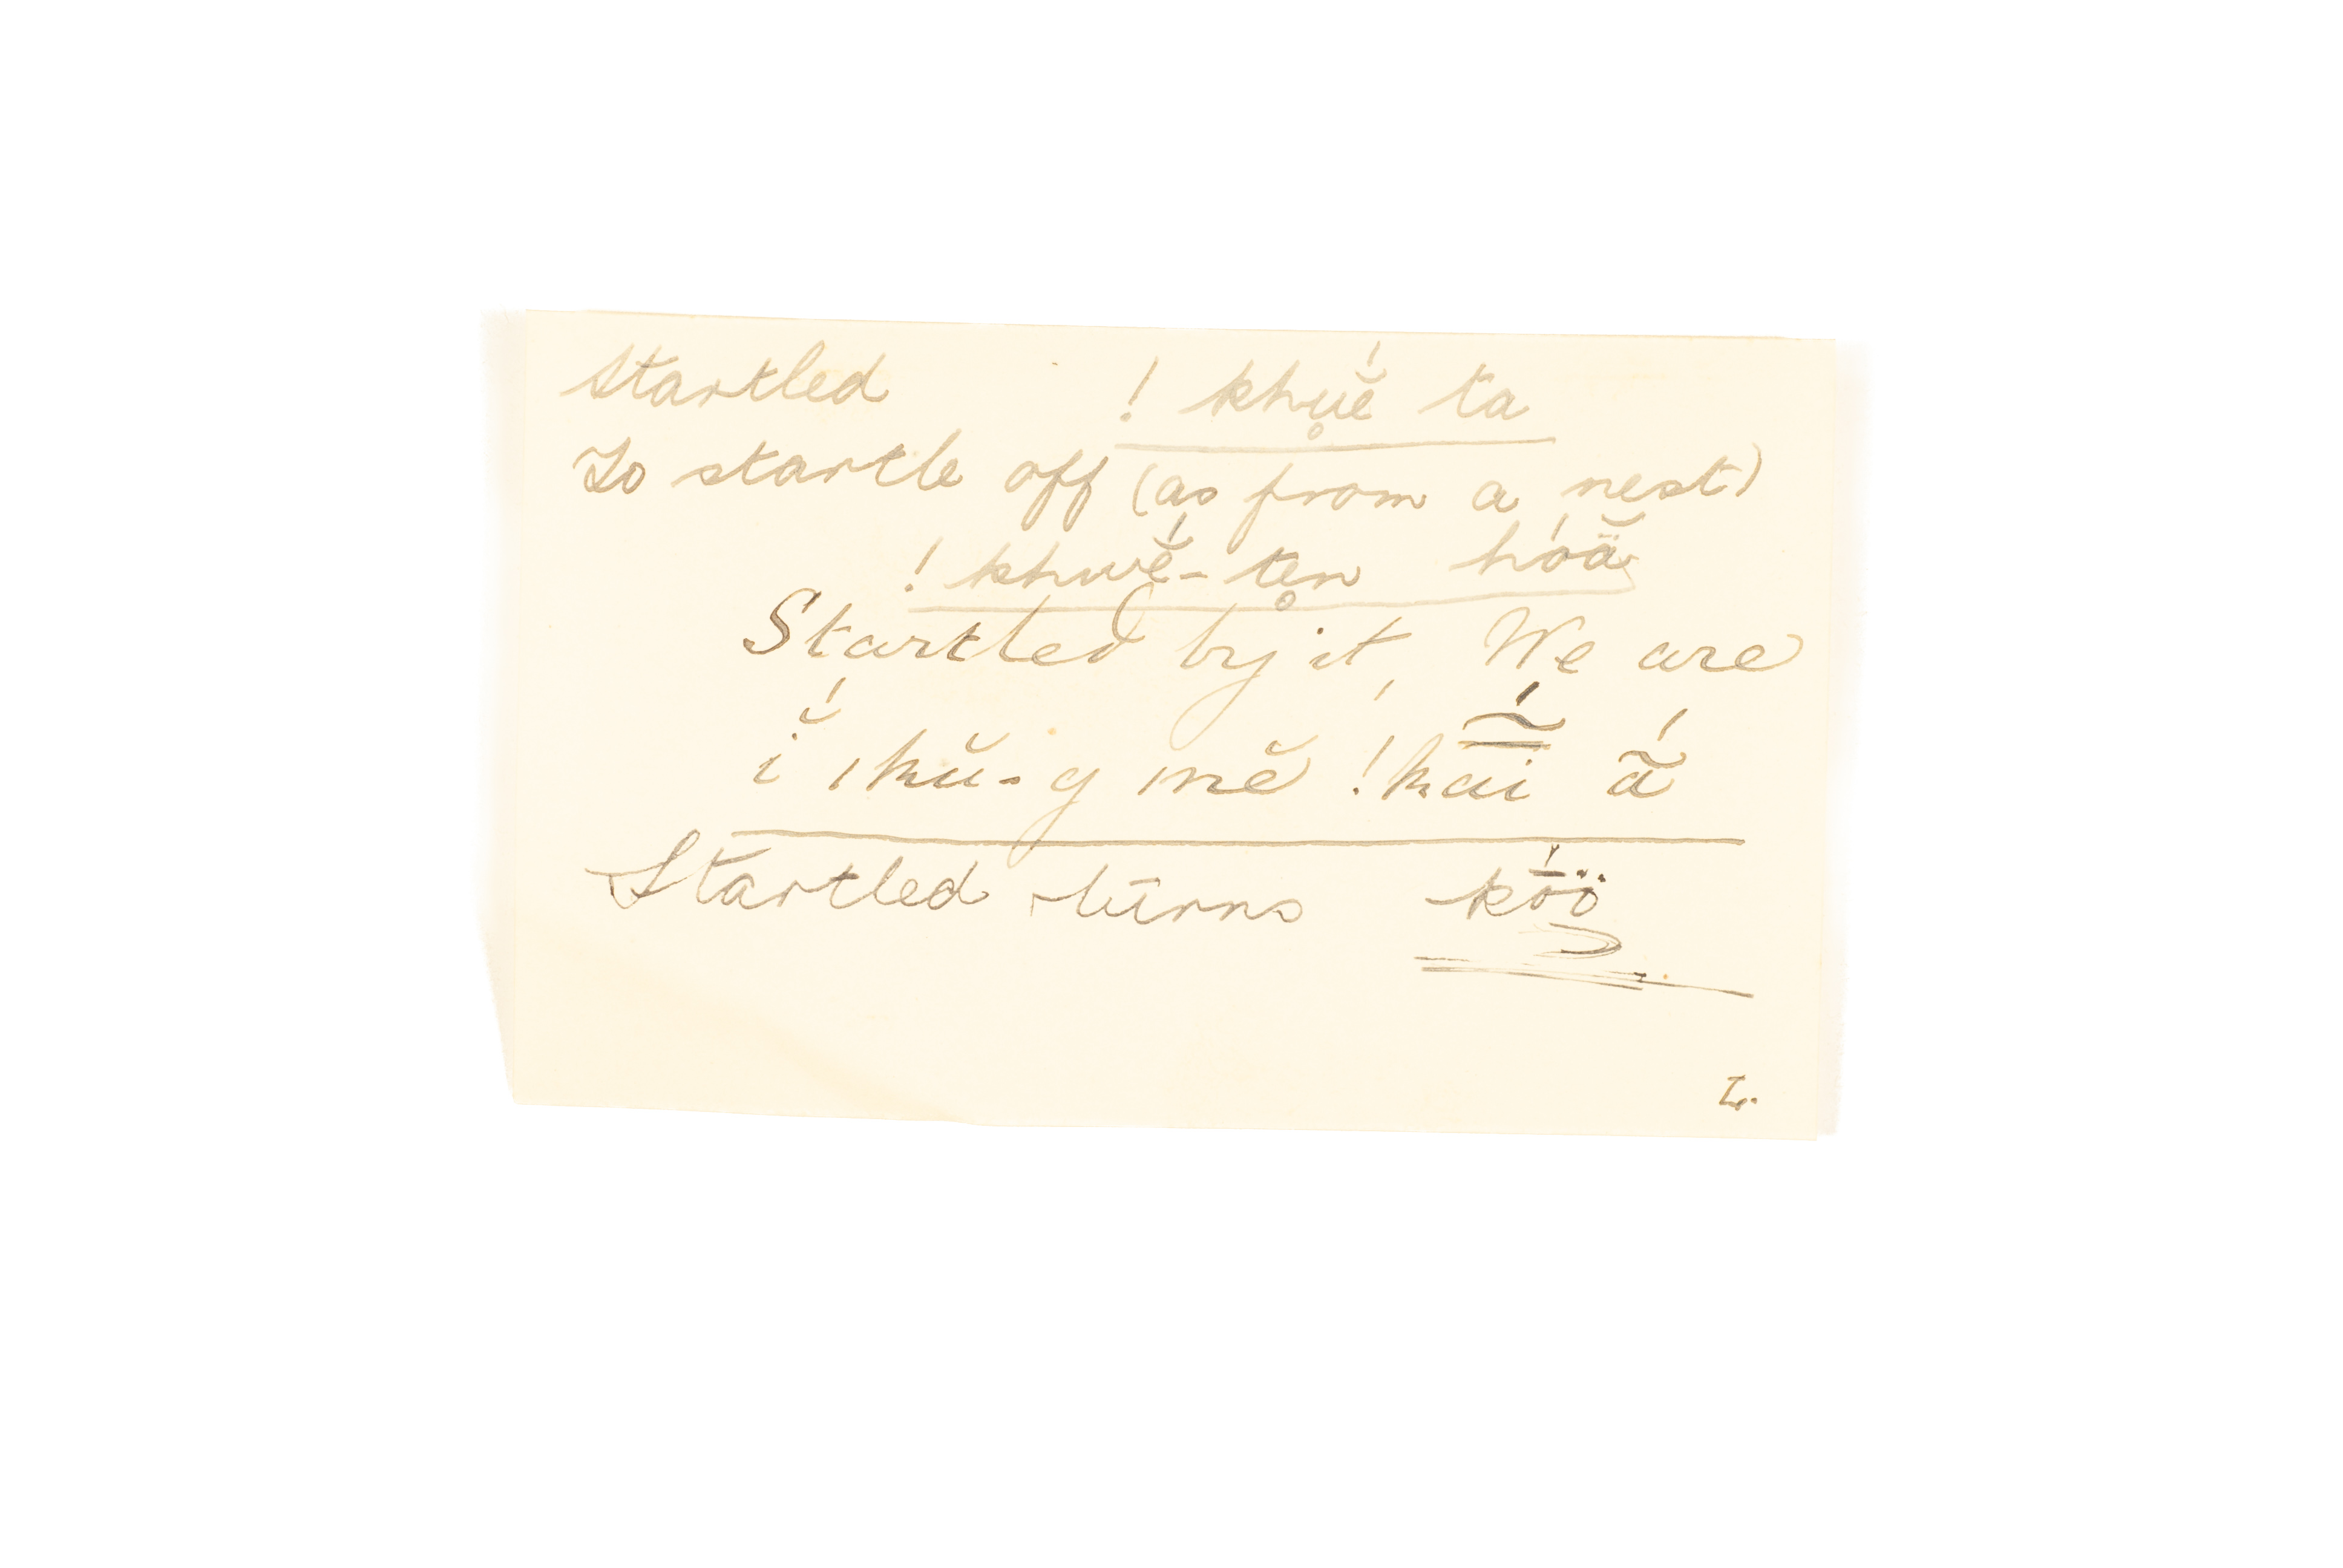 Startled ! khuĕ́ ta
To startle off (as from a nest)
! khwĕ́-ten hóä̆
Startled by it, We are
ĭ́ ǀkŭ-g ǀnĕ !kai ã́
Startled turns kṓö
L.